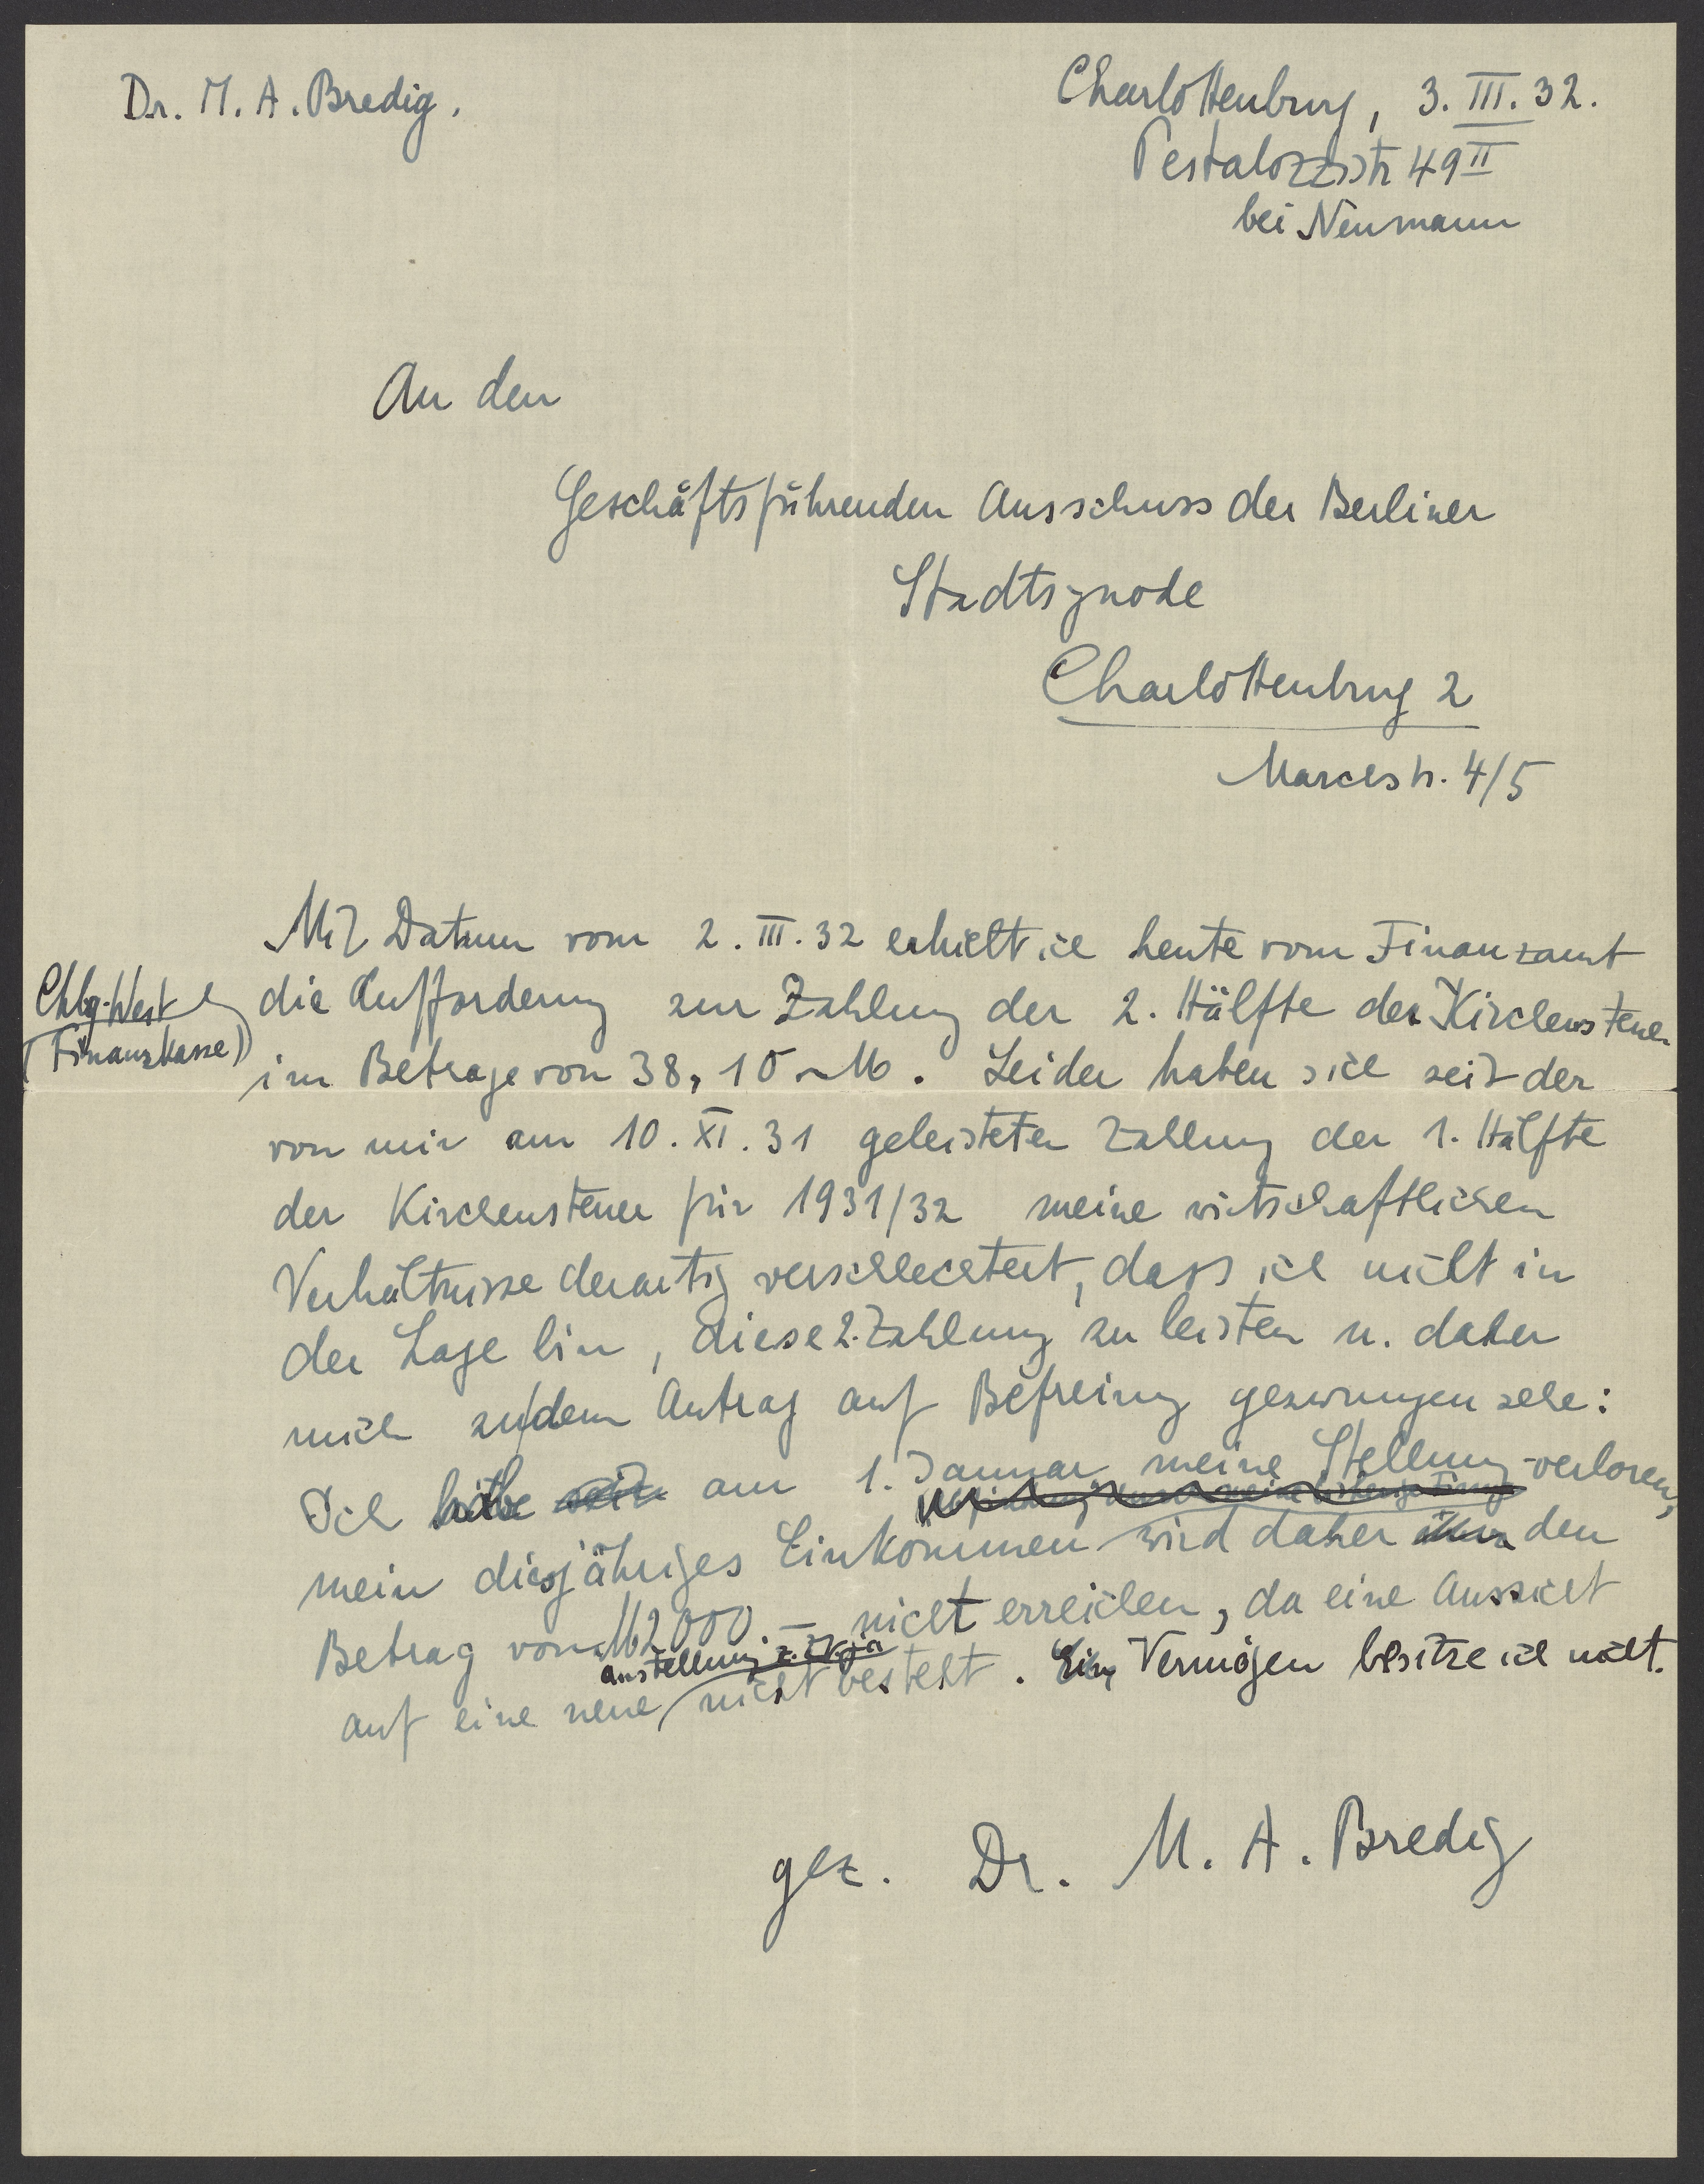 Dr. M. A. Bredig.
Charlottenburg, 3. III. 32.
Pestalozzistr 49 II
bei Neumann
An den
Geschäftsführenden Ausschuss der Berliner
Stadtsynode
Charlottenburg 2
Marchstr. 4/5
Mit Datum vom 2. III. 32 erhielt ich heute vom Finanzamt
Chbg-West
(Finanzkasse)
die Aufforderung zur Zahlung der 2. Hälfte der Kirchensteuer
im Betrage von 38,10 M. Leider haben sich seit der
von mir am 10. XI. 31 geleisteten Zahlung der 1. Hälfte
der Kirchensteuer für 1931/32 meine wirtschaftlichen
Verhältnisse derartig verschlechtert, dass ich nicht in
der Lage bin, diese 2. Zahlung zu leisten u. daher
mich zu dem Antrag auf Befreiung gezwungen sehe:
Ich habe am 1. Januar meine Stellung verloren,
mein diesjähriges Einkommen wird daher den
Betrag von M 2000.— nicht erreichen, da eine Aussicht
anstellung z. Zt. ja
auf eine neue nicht besteht. Ein Vermögen besitze ich nicht.
gez. Dr. M. A. Bredig